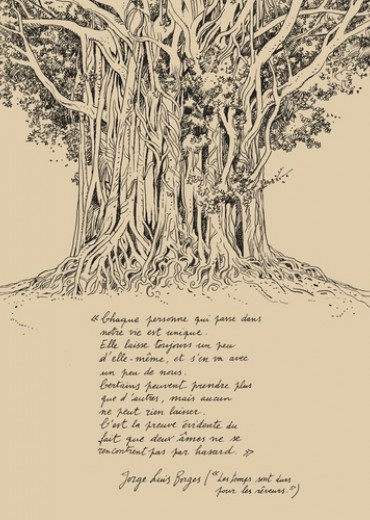 « Chaque personne qui passe dans
notre vie est unique.
Elle laisse toujours un peu
d'elle-même, et s'en va avec
un peu de nous.
Certains peuvent prendre plus
que d'autres, mais aucun
ne peut rien laisser.
C'est la preuve évidente du
fait que deux âmes ne se
rencontrent pas par hasard. »
Jorge Luis Borges (“Les temps sont durs
pour les rêveurs.”)